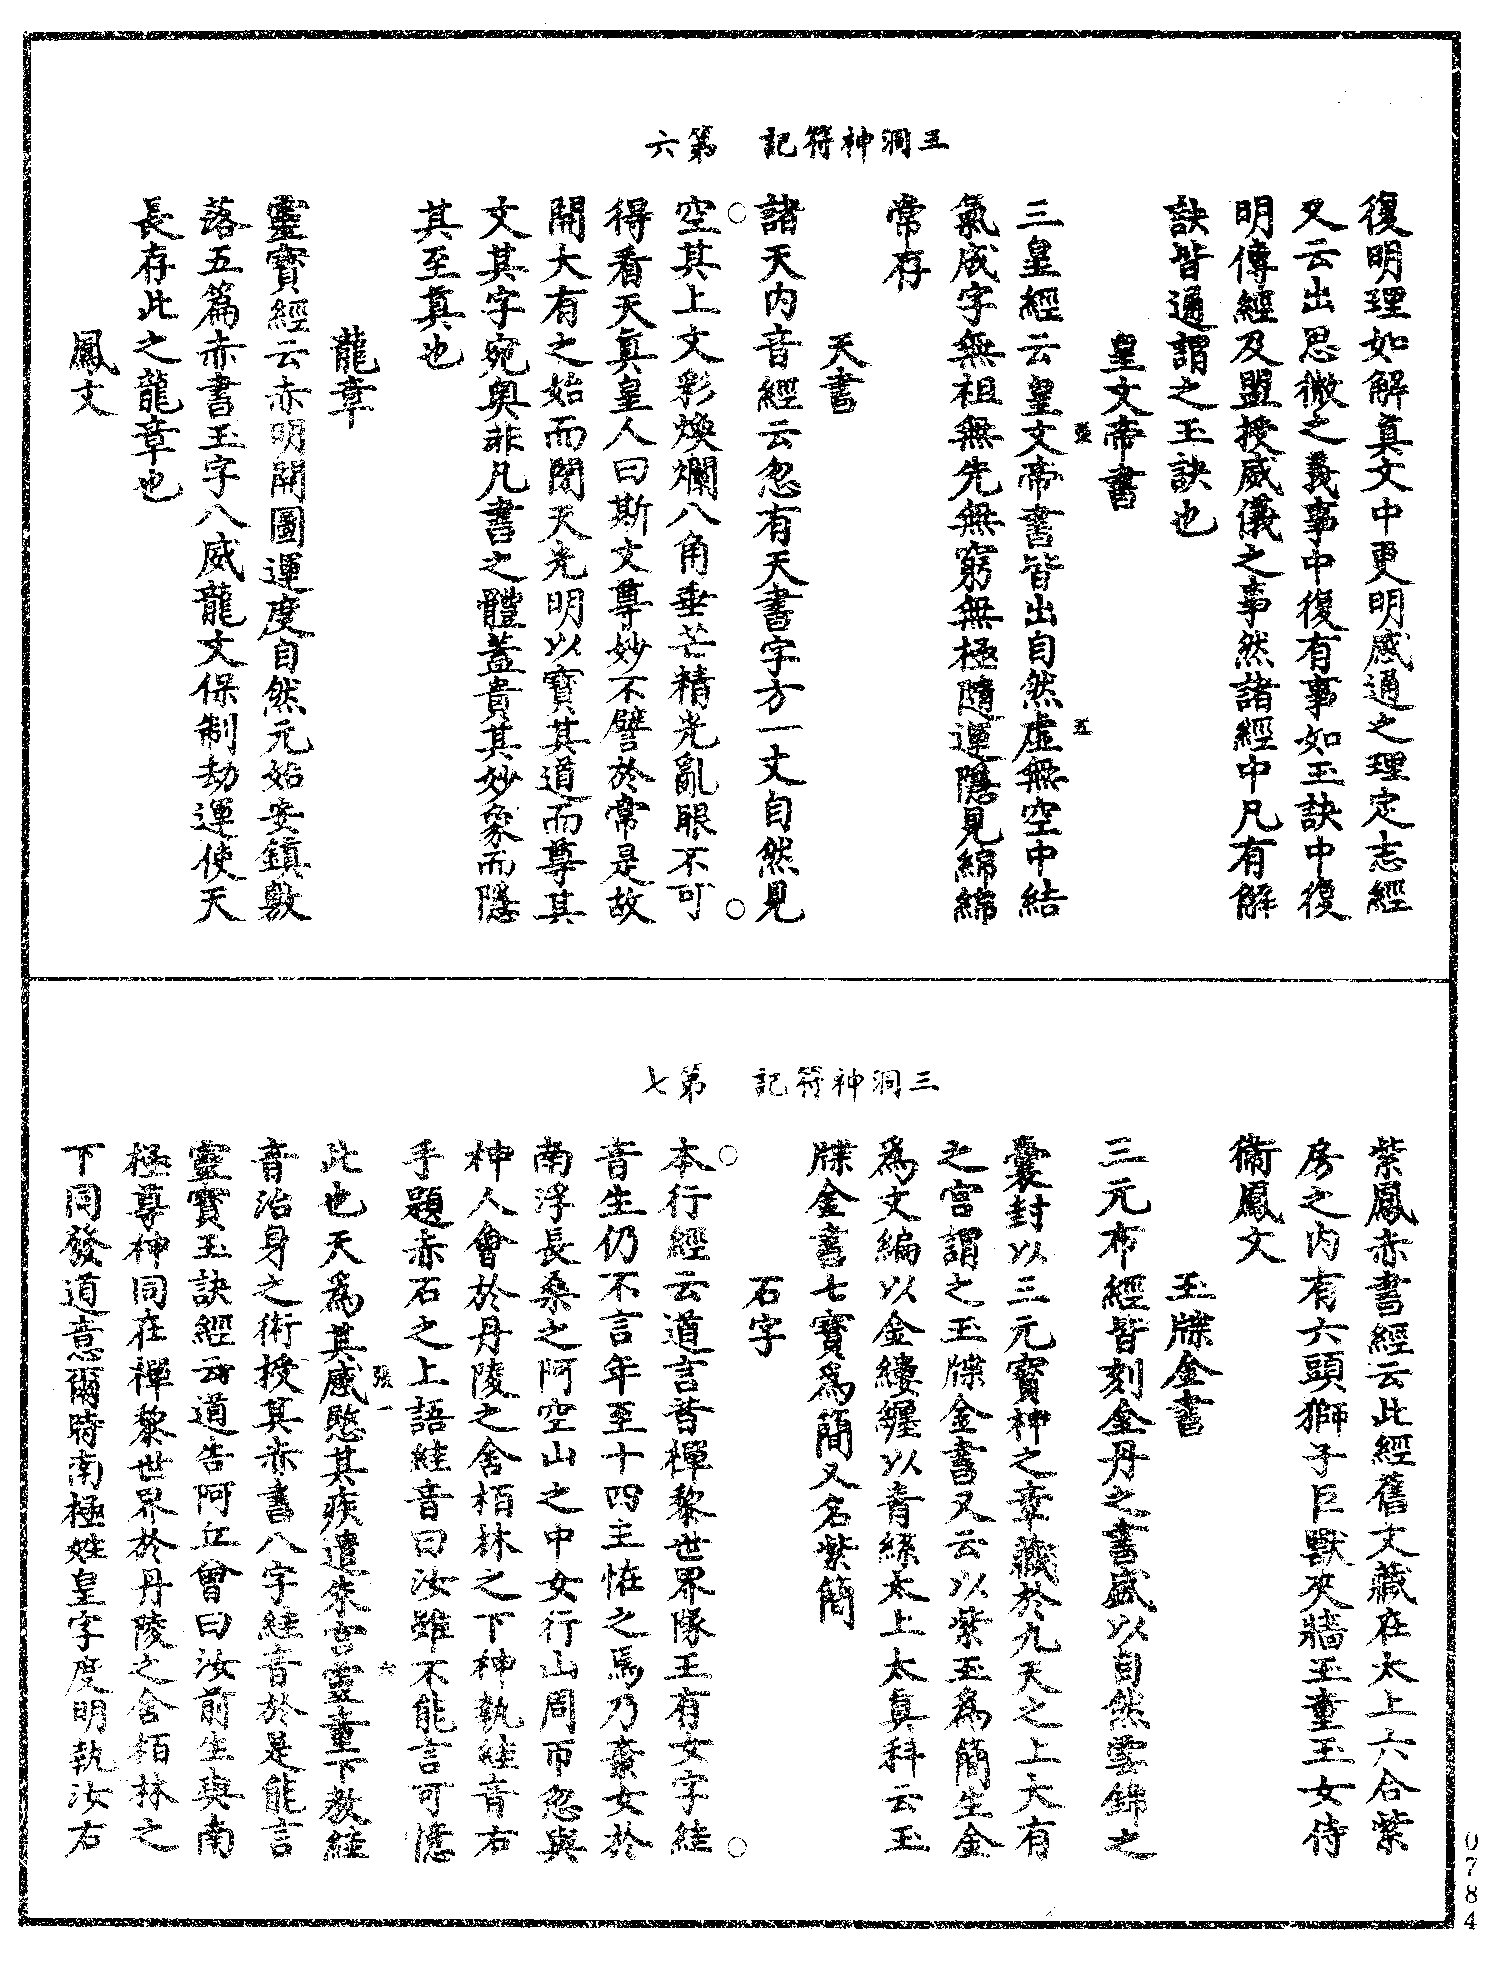 三洞神符記　第六
復明理如解真文中更明感通之理定志經
又云出思微之義事中復有事如玉訣中復
明傳經及盟授威儀之事然諸經中凡有解
訣皆通謂之玉訣也
皇文帝書
三皇經云皇文帝書皆出自然虛無空中結
氣成字無祖無先無窮無極隨運隱見綿綿
常存
天書
諸天內音經云忽有天書字方一丈自然見
空其上文彩煥爛八角垂芒精光亂眼不可
得看天真皇人曰斯文尊妙不譬於常是故
開大有之始而閉天光明以寶其道而尊其
文其字宛奧非凡書之體蓋貴其妙象而隱
其至真也
龍章
靈寶經云赤明開圖運度自然元始安鎮敷
落五篇赤書玉字八威龍文保制劫運使天
長存此之龍章也
鳳文
三洞神符記　第七
紫鳳赤書經云此經舊文藏在太上六合紫
房之內有六頭獅子巨獸夾牆玉童玉女侍
衛鳳文
玉牒金書
三元布經皆刻金丹之書盛以自然雲錦之
囊封以三元寶神之章藏於九天之上大有
之宮謂之玉牒金書又云以紫玉為簡生金
為文編以金縷纏以青絲太上太真科云玉
牒金書七寶為簡又名紫簡
石字
本行經云道言昔禪黎世界隊王有女字絓
音生仍不言年至十四王怪之焉乃棄女於
南浮長桑之阿空山之中女行山周帀忽與
神人會於丹陵之舍栢林之下神執絓音右
手題赤石之上語絓音曰汝雖不能言可憶
此也天為其感愍其疾遣朱宮靈童下教絓
音治身之術授其赤書八字絓音於是能言
靈寶玉訣經云道告阿丘曾曰汝前生與南
極尊神同在禪黎世界於丹陵之舍栢林之
下同發道意爾時南極姓皇字度明執汝右
0784